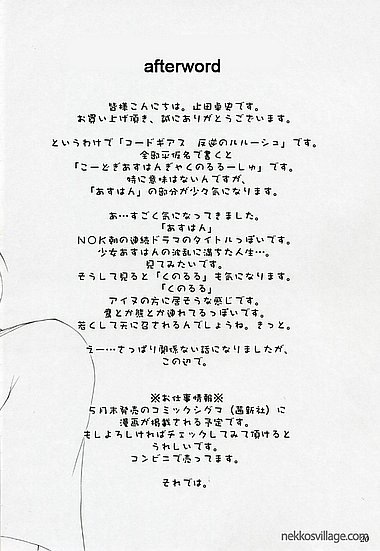 afterword
皆様こんにちは。止田卓史です。
お買い上げ頂き、誠にありがとうございます。
というわけで「コードギアス　反逆のルルーシュ」です。
全部平仮名で書くと
「こーどぎあすはんぎゃくのるるーしゅ」です。
特に意味はないんですが、
「あすはん」の部分が少々気になります。
あ…すごく気になってきました。
「あすはん」
NOK朝の連続ドラマのタイトルっぽいです。
少女あすはんの波乱に満ちた人生…。
見てみたいです。
そうして見ると「くのるる」も気になります。
「くのるる」
アイヌの方に居そうな感じです。
鷹とか熊とか連れてるっぽいです。
若くして天に召されるんでしょうね。きっと。
えー…さっぱり関係ない話になりましたが、
この辺で。
※お仕事情報※
5月末発売のコミックシグマ（茜新社）に
漫画が掲載される予定です。
もしよろしければチェックしてみて頂けると
うれしいです。
コンビニで売ってます。
それでは。
20
nekkosvillage.com